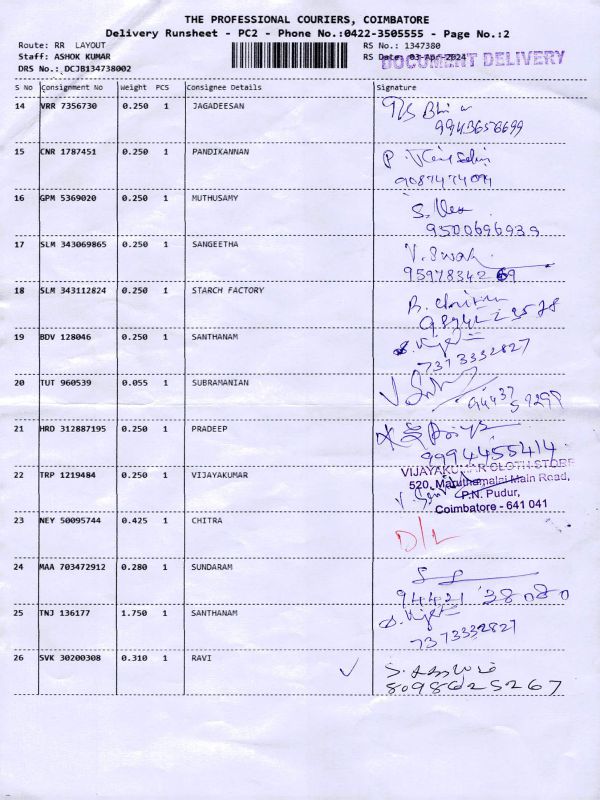 THE PROFESSIONAL COURIERS, COIMBATORE
Delivery Runsheet - PC2 - Phone No.:0422-3505555 - Page No.:2
Route: RR LAYOUT RS No.: 1347380
Staff: ASHOK KUMAR RS Date: 03-Apr-2024 DOCUMENT DELIVERY
DRS No.: DCJB134738002
S No Consignment No Weight PCS Consignee Details Signature
14 VRR 7356730 0.250 1 JAGADEESAN
15 CNR 1787451 0.250 1 PANDIKANNAN P.
9087474074
16 GPM 5369020 0.250 1 MUTHUSAMY S.
9500696939
17 SLM 343069865 0.250 1 SANGEETHA V. Swah
9597834269
18 SLM 343112824 0.250 1 STARCH FACTORY B.
19 BDV 128046 0.250 1 SANTHANAM
7373332827
20 TUT 960539 0.055 1 SUBRAMANIAN
21 HRD 312887195 0.250 1 PRADEEP
9994455414
VIJAYAKUMAR CLOTH STORE
22 TRP 1219484 0.250 1 VIJAYAKUMAR 520, Maruthamalai Main Road,
P.N. Pudur,
Coimbatore - 641 041
23 NEY 50095744 0.425 1 CHITRA D/L
24 MAA 703472912 0.280 1 SUNDARAM
94421 38080
25 TNJ 136177 1.750 1 SANTHANAM
7373332827
26 SVK 30200308 0.310 1 RAVI S.
8098625267